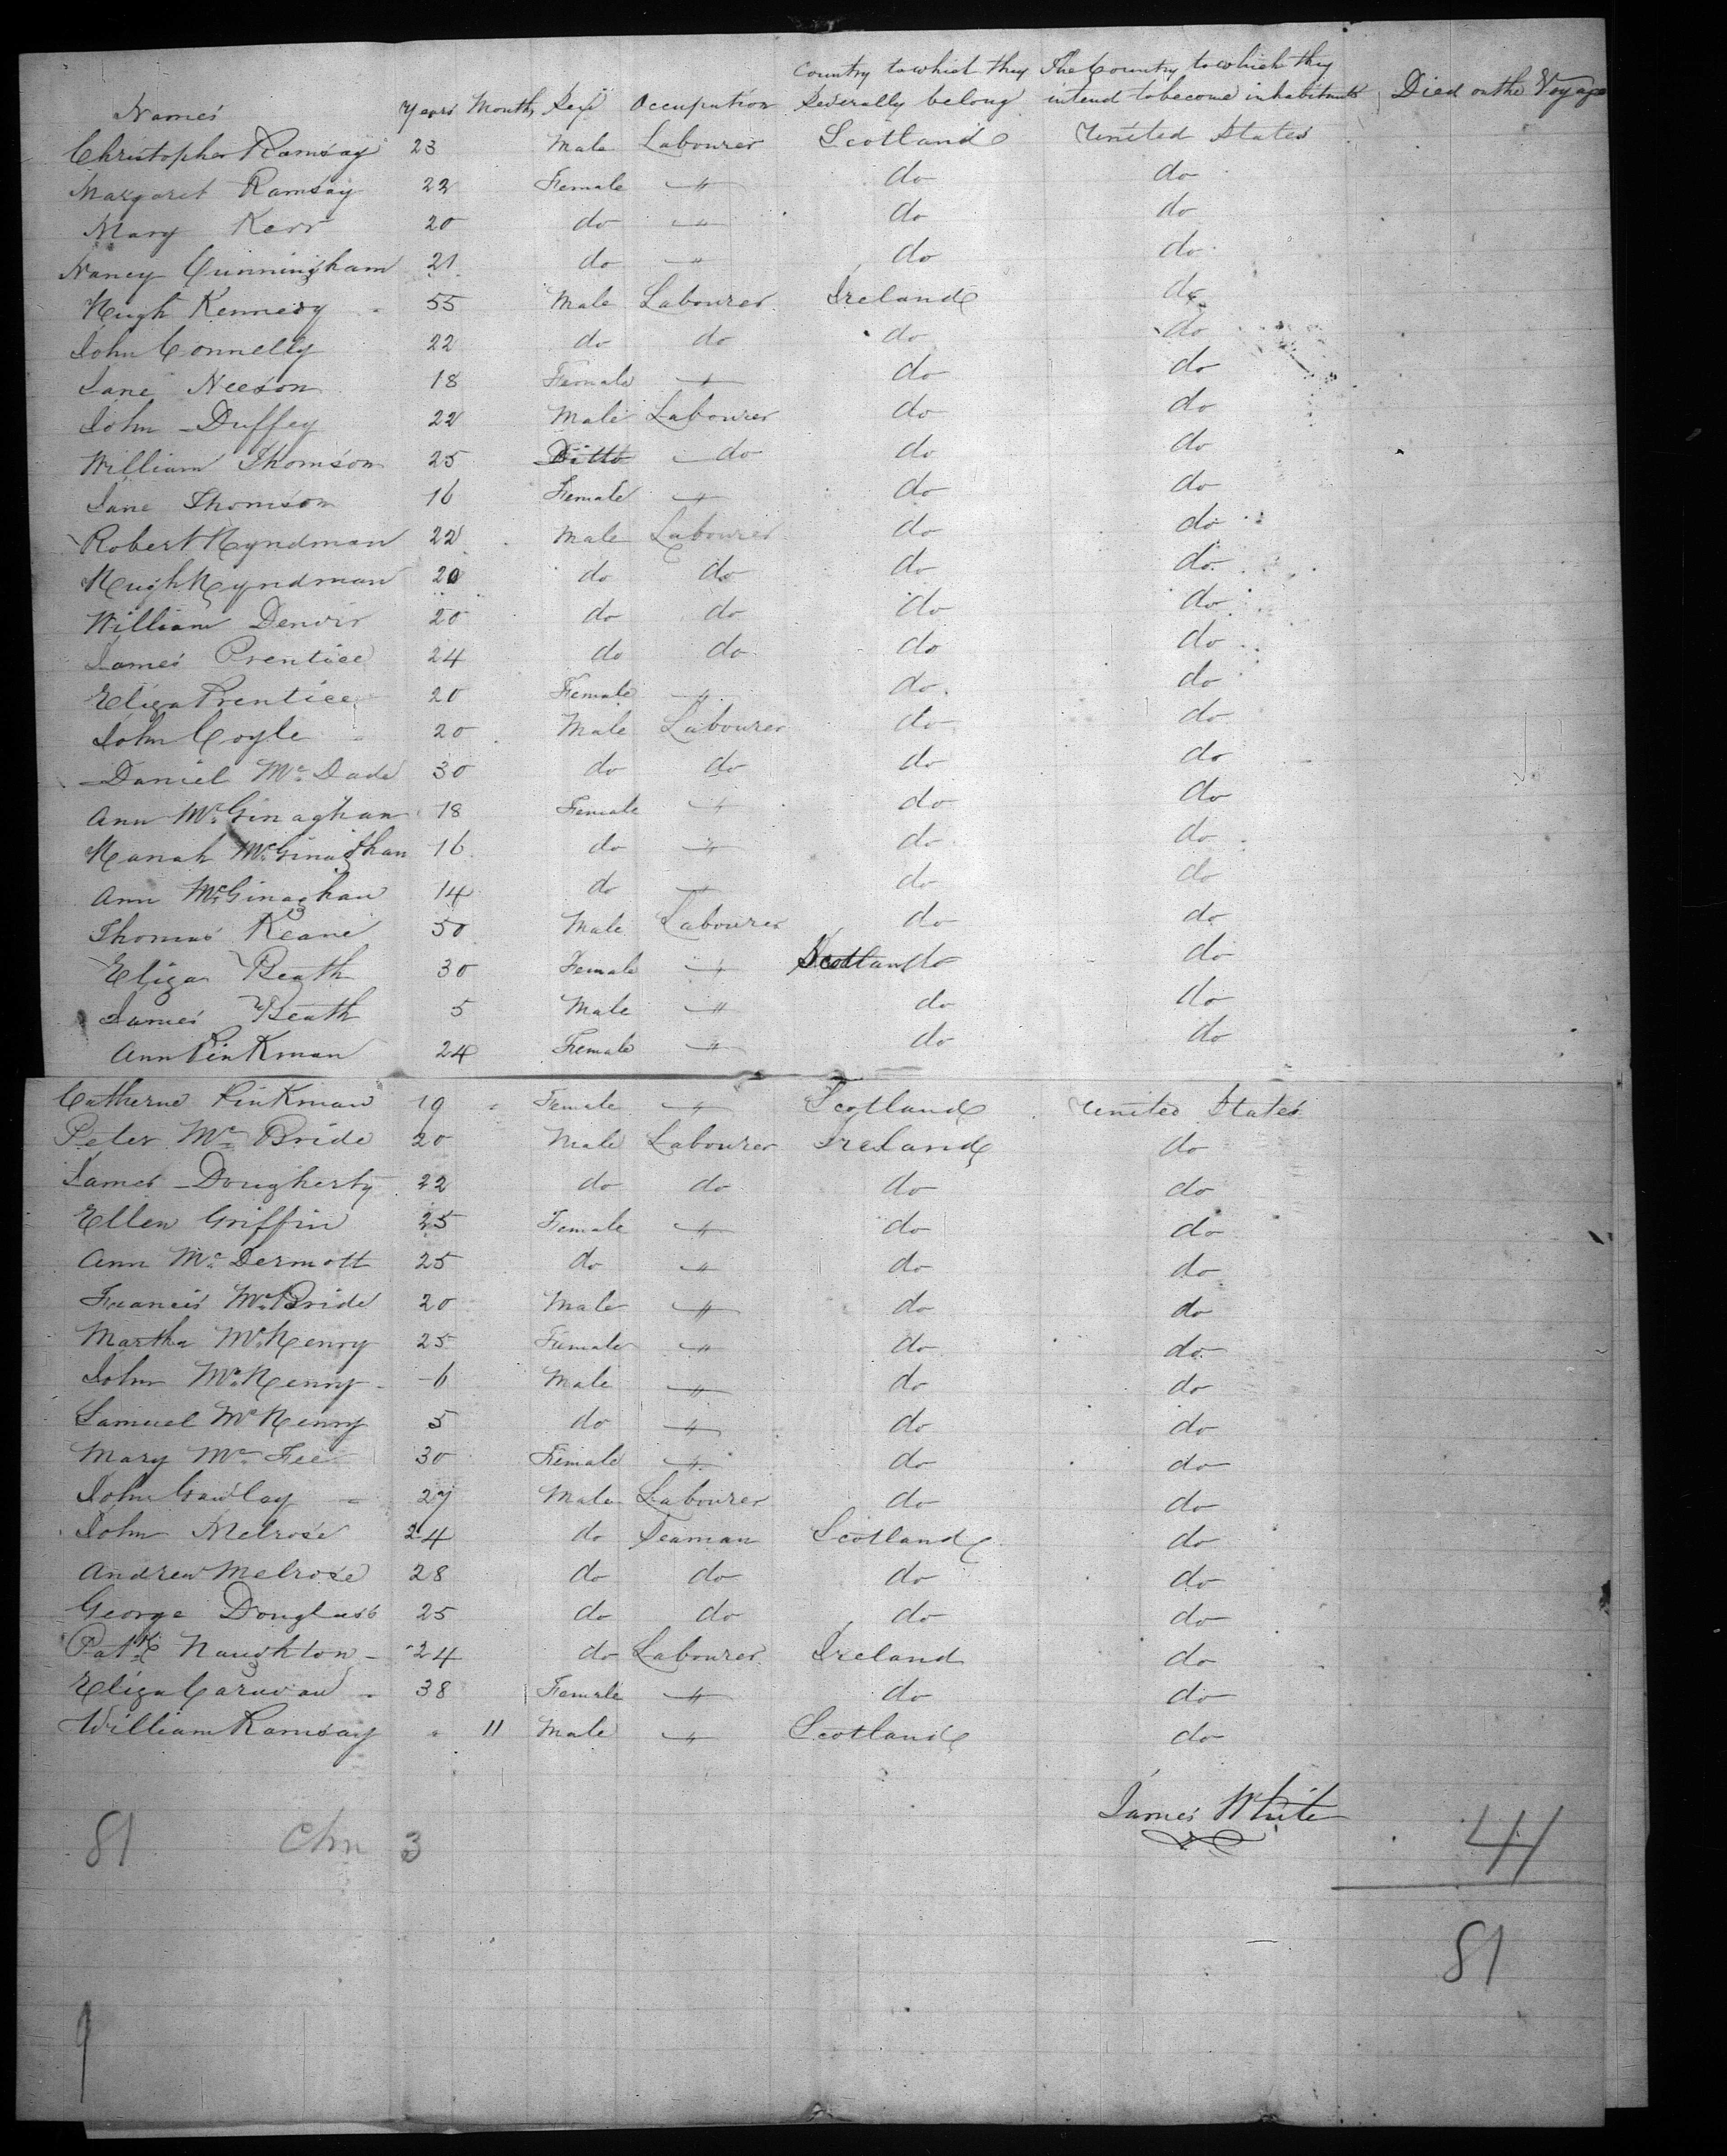 Country to which they The Country to which they
Names Years Months Sex Occupation Severally belong intend to become inhabitants Died on the Voyage
Christopher Ramsay 23 Male Labourer Scotland United States
Margaret Ramsay 22 Female " do do
Mary Kerr 20 do " do do
Nancy Cunningham 21 do " do do
Hugh Kennedy 55 Male Labourer Ireland do
John Connelly 22 do do do do
Jane Neeson 18 Female " do do
John Duffey 22 Male Labourer do do
William Thomson 25 Ditto do do do
Jane Thomson 16 Female " do do
Robert Hyndman 22 Male Labourer do do
Hugh Hyndman 20 do do do do
William Denvir 20 do do do do
James Prentice 24 do do do do
Eliza Prentice 20 Female " do do
John Coyle 20 Male Labourer do do
Daniel McDade 30 do do do do
Ann McGinaghan 18 Female " do do
Hanah McGinaghan 16 do " do do
Ann McGinaghan 14 do " do do
Thomas Keane 50 Male Labourer do do
Eliza Beath 30 Female " Scotland do do
James Beath 5 Male " do do
Ann Pinkman 24 Female " do do
Catherne Pinkman 19 Female " Scotland United States
Peter McBride 20 Male Labourer Ireland do
James Dougherty 22 do do do do
Ellen Griffin 25 Female " do do
Ann McDermott 25 do " do do
Francis McBride 20 Male " do do
Martha McHenry 25 Female " do do
John McHenry 6 Male " do do
Samuel McHenry 5 do " do do
Mary McFee 30 Female " do do
John Gawlay 27 Male Labourer do do
John Melrose 24 do Seaman Scotland do
Andrew Melrose 28 do do do do
George Douglass 25 do do do do
Patk Naughton 24 do Labourer Ireland do
Eliza Caravan 38 Female " do do
William Ramsay " 11 Male " Scotland do
James White
81 Chn 3 41
81
9